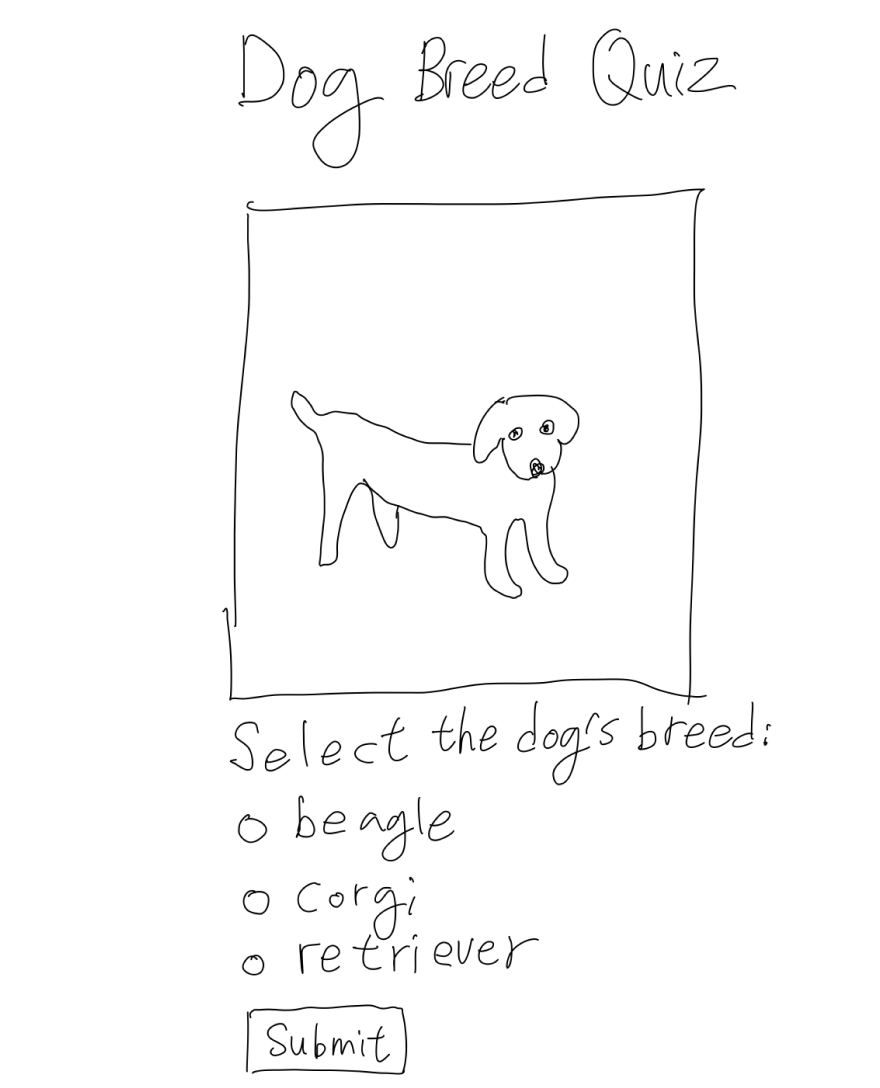 Dog Breed Quiz
Select the dog's breed:
beagle
corgi
retriever
Submit